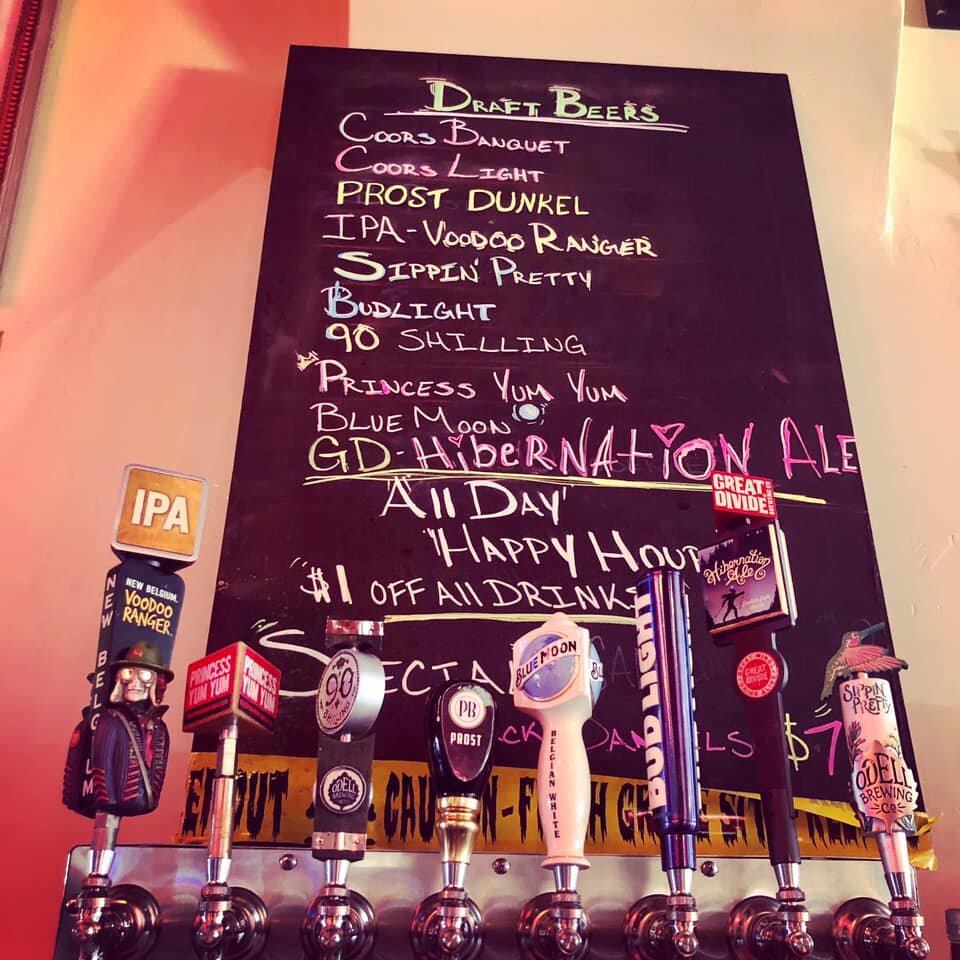 DRAFT BEERS
COORS BANQUET
COORS LIGHT
PROST DUNKEL
IPA-VOODOO RANGER
SIPPIN' PRETTY
BUDLIGHT
90 SHILLING
PRINCESS YUM YUM
BLUE MOON
GD-HiberNATiON ALE
'All DAY'
'HAPPY HOUR
$1 OFF All DRINKS
SPECIAL
DANIELS $7
IPA
NEW BELGIUM
NEW BELGIUM.
VOODOO
RANGER.
PRINCESS
YUM YUM
PRINCESS
YUM YUM
90
SHILLING
ODELL
BREWING
PB
PROST
BLUE MOON
BELGIAN WHITE
BUD LIGHT
GREAT
DIVIDE
Hibernation
Ale
GREAT
DIVIDE
SIPPIN'
PRETTY
ODELL
BREWING
CO